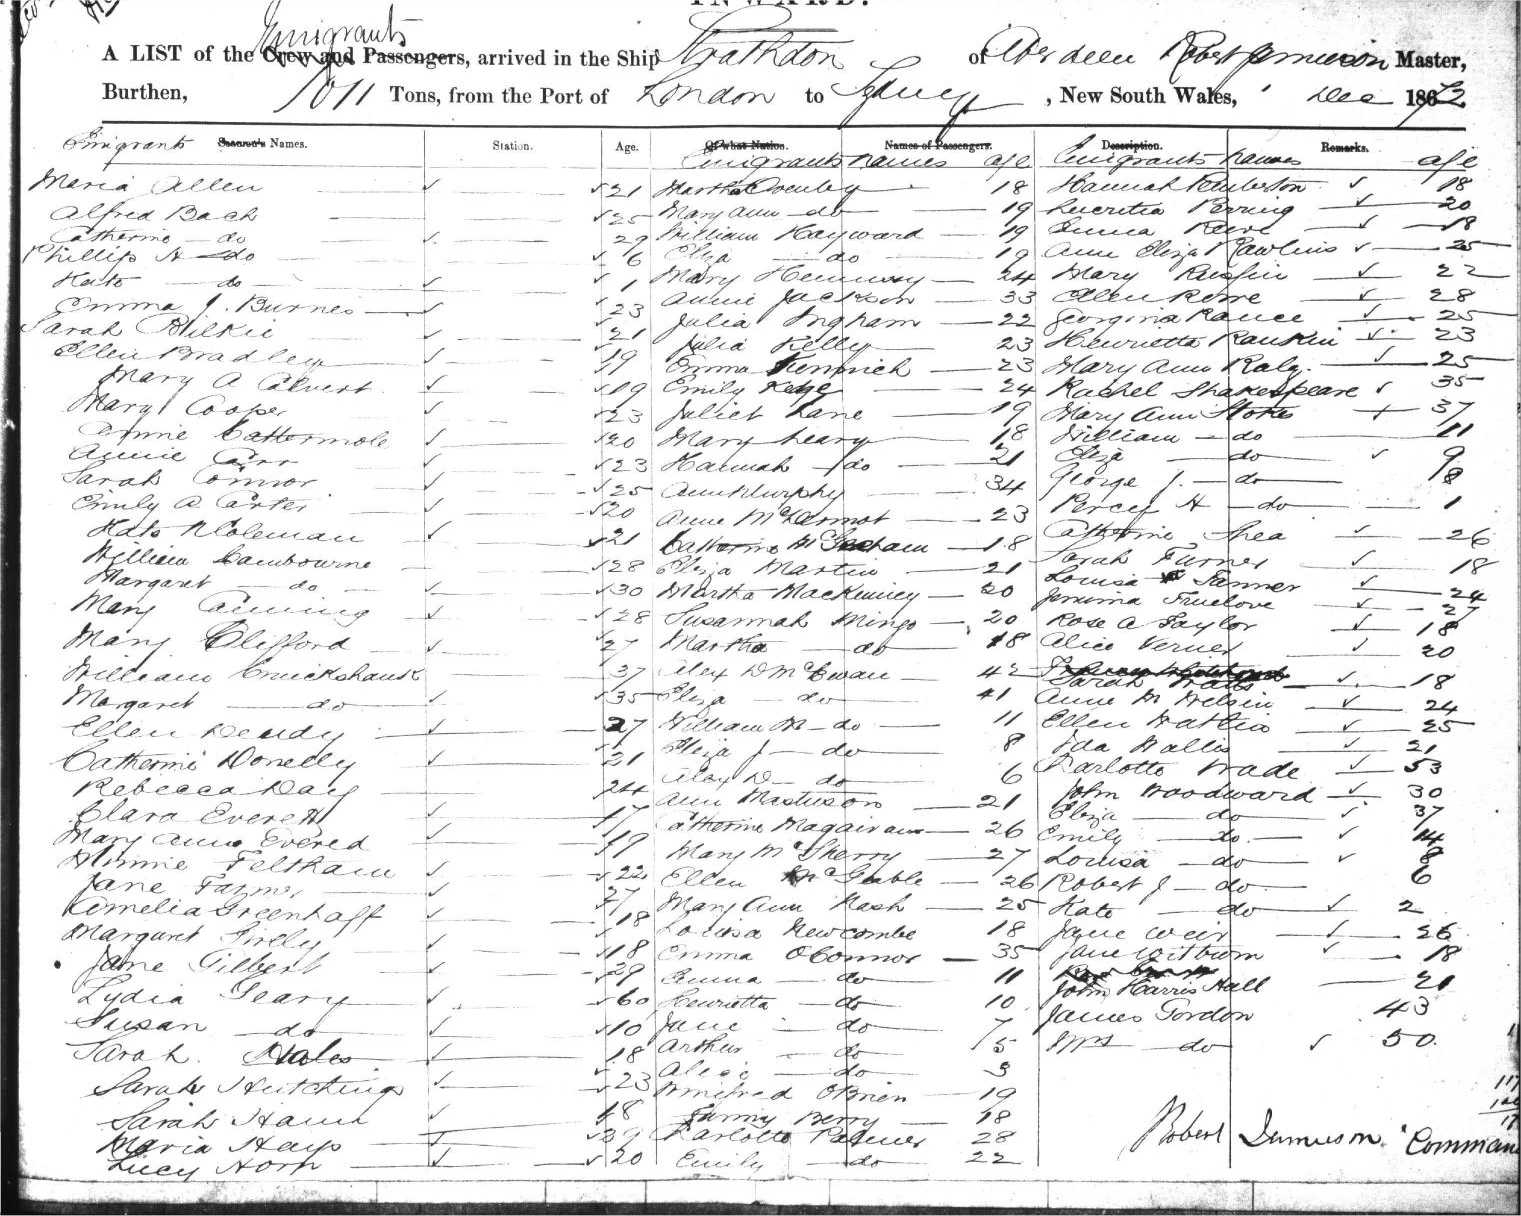 INWARD.
Emigrants
A LIST of the Crew and Passengers, arrived in the Ship Strathdon of Aberdeen Robert Jamieson Master,
Burthen, 1011 Tons, from the Port of London to Sydney, New South Wales, Dec 1872
Emigrants Seamen's Names. Station. Age. Of what Nation. Names of Passengers. Description. Remarks.
Emigrants names age Emigrants names age
Maria Allen 21
Alfred Bach 25
Catherine do 29
Phillip H do 6
Kate do 1
Emma J. Burnes 23
Sarah Bilkie 21
Ellen Bradley 19
Mary A Calvert 19
Mary Cooper 23
Annie Cattermole 20
Annie Carr 23
Sarah Connor 25
Emily A Carter 20
Kate Coleman 21
William Cambourne 28
Margaret do 30
Mary Canning 28
Mary Clifford 27
William Cruickshank 37
Margaret do 35
Ellen Deady 27
Catherine Donelly 21
Rebecca Day 24
Clara Everett 17
Mary Ann Evered 19
Minnie Feltham 22
Jane Farmer 27
Amelia Greenhalf 18
Margaret Girlly 18
Jane Gilbert 29
Lydia Geary 60
Susan do 10
Sarah Hales 18
Sarah Hutchings 23
Sarah Hann 18
Maria Hays 39
Lucy Horn 20
Martha 18
Mary Ann do 19
William Hayward 19
Eliza do 19
Mary Hennessy 24
Annie Jackson 33
Julia Ingham 22
Julia Kelly 23
Emma 23
Emily 24
Juliet Lane 19
Mary Leary 18
Hannah do 21
Ann Murphy 34
Anne McDermot 23
Catherine 18
Eliza Martin 21
Martha Mackinney 20
Susannah Mingo 20
Martha do 18
Alex D McEwan 42
Eliza do 41
William M do 11
Eliza J do 8
Alex D do 6
Ann Masterson 21
Catherine 26
Mary McSherry 27
Ellen 26
Mary Ann Nash 25
Louisa Newcombe 18
Emma OConnor 35
Emma do 11
Henrietta do 10
Jane do 7
Arthur do 5
Alice do 3
Winifred OBrien 19
Fanny Berry 18
Karlotte Palmer 28
Emily do 22
Hannah Pemberton 18
Lucretia Perring 20
Emma Reeve 18
Ann Eliza Rawlins 25
Mary 22
Ellen Rowe 28
Georgina Rance 25
Henrietta Rankin 23
Mary Ann Raly 25
Rachel Shakespeare 35
Mary Ann Stoke 37
William do 11
Eliza do 9
George J. do 8
Percy H do 1
Catherine Shea 26
Sarah Turner 18
Louisa Tanner 24
Jemima Truelove 27
Rose A Taylor 18
Alice Verner 20
Sarah Watts 18
Anne M Wilson 24
Ellen Watkin 25
Ida Wallis 21
Karlotte Wade 53
John Woodward 30
Eliza do 37
Emily do 14
Louisa do 8
Robert J do 6
Kate do 2
Jane Weir 26
Jane Witburn 18
John Harris Hall 21
James Gordon 43
Mrs do 50
Robert Jamieson